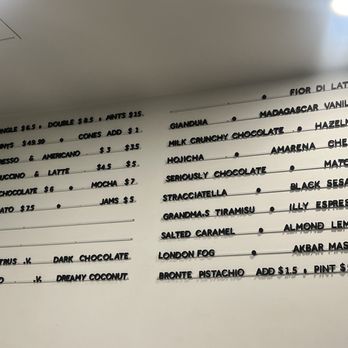 NGLE $6.5 • DOUBLE $8.5 • PINTS $15
NTS $49.99 • CONES ADD $ 1
RESSO & AMERICANO $ 3 $3.5
UCCINO & LATTE $4.5 $5
CHOCOLATE $ 6 • MOCHA $ 7
ATO $7.5 • JAMS $ 5
TRUS .V. DARK CHOCOLATE
O .V. DREAMY COCONUT
• FIOR DI LAT
GIANDUIA • MADAGASCAR VANIL
MILK CRUNCHY CHOCOLATE • HAZELN
HOJICHA • AMARENA CHE
SERIOUSLY CHOCOLATE • MATC
STRACCIATELLA • BLACK SESA
GRANDMA,S TIRAMISU • ILLY ESPRES
SALTED CARAMEL • ALMOND LEM
LONDON FOG • AKBAR MAS
BRONTE PISTACHIO ADD $ 1.5 • PINT $